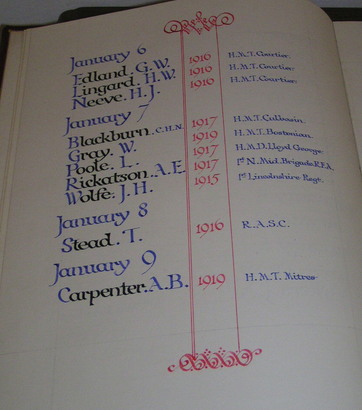 January 6
Edland. G.W. 1916 H.M.T. Courtier
Lingard. H.W. 1916 H.M.T. Courtier
Neeve. H.J. 1916 H.M.T. Courtier
January 7
Blackburn. C.H.N. 1917 H.M.T.
Gray. W. 1919 H.M.T. Bostonian
Poole. L. 1917 H.M.D. Lloyd George
Rickatson. A.E. 1917 1st N. Mid. Brigade. R.F.A.
Wolfe. J.H. 1915 1st Lincolnshire Regt.
January 8
Stead. T. 1916 R.A.S.C.
January 9
Carpenter. A.B. 1919 H.M.T. Mitres